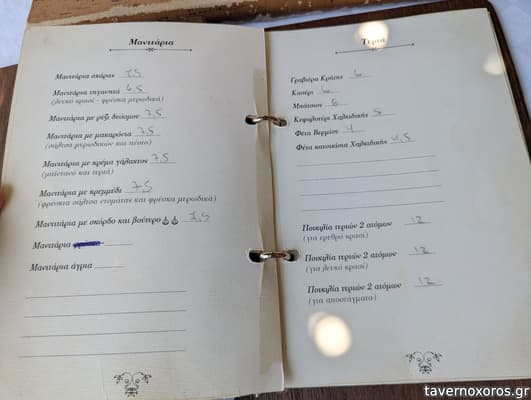 Μανιτάρια
Μανιτάρια σχάρας 7,5
Μανιτάρια τηγανητά 6,5
(λευκό κρασί - φρέσκα μυρωδικά)
Μανιτάρια με ρύζι δυόσμου 7,5
Μανιτάρια με μακαρόνια 7,5
(σάλτσα μυρωδικών και πέστο)
Μανιτάρια με κρέμα γάλακτος 7,5
(μαϊντανό και τυρί)
Μανιτάρια με κρεμμύδι 7,5
(φρέσκια σάλτσα ντομάτας και φρέσκα μυρωδικά)
Μανιτάρια με σκόρδο και βούτυρο 7,5
Μανιτάρια
Μανιτάρια άγρια
Τυριά
Γραβιέρα Κρήτης 6
Κασέρι 6
Μπάτσος 6
Κεφαλοτύρι Χαλκιδικής 5
Φέτα Βερμίου 4
Φέτα κατσικίσια Χαλκιδικής 4,5
Ποικιλία τυριών 2 ατόμων 12
(για ερυθρό κρασί)
Ποικιλία τυριών 2 ατόμων 12
(για λευκό κρασί)
Ποικιλία τυριών 2 ατόμων 12
(για αποστάγματα)
tavernoxoros.gr